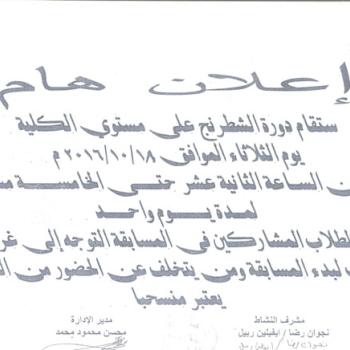 إعلان هام
ستقام دورة الشطرنج على مستوي الكلية
يوم الثلاثاء الموافق ٢٠١٦/١٠/١٨ م
الساعة الثانية عشر حتى الخامسة
لمدة يوم واحد
المشاركين في المسابقة التوجه إلى
لبدء المسابقة ومن يتخلف عن الحضور من
يعتبر منسحبا
مشرف النشاط
نجوان رضا / ايفيلين ربيل
مدير الإدارة
محسن محمود محمد